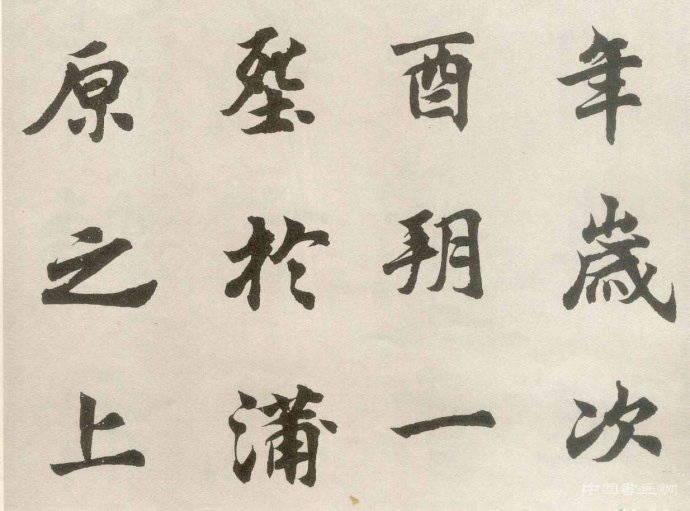 年歲次
酉朔一
於蒲
原之上
中国书画网